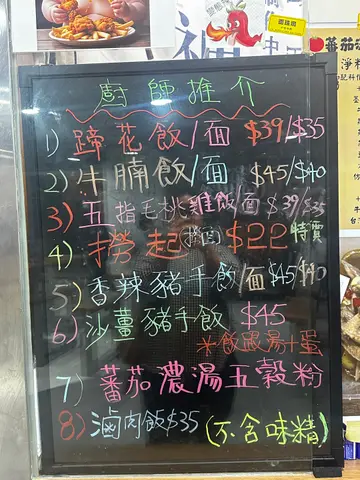 廚師推介
1) 蹄花飯/面 $39/$35
2) 牛腩飯/面 $45/$40
3) 五指毛桃雞飯/面 $39/$35
4) 撈起 $22 特賣
5) 香辣豬手飯/面 $45/$40
6) 沙薑豬手飯 $45
*飯跟湯+蛋
7) 蕃茄濃湯五穀粉
8) 滷肉飯$35 (不含味精)
蕃茄